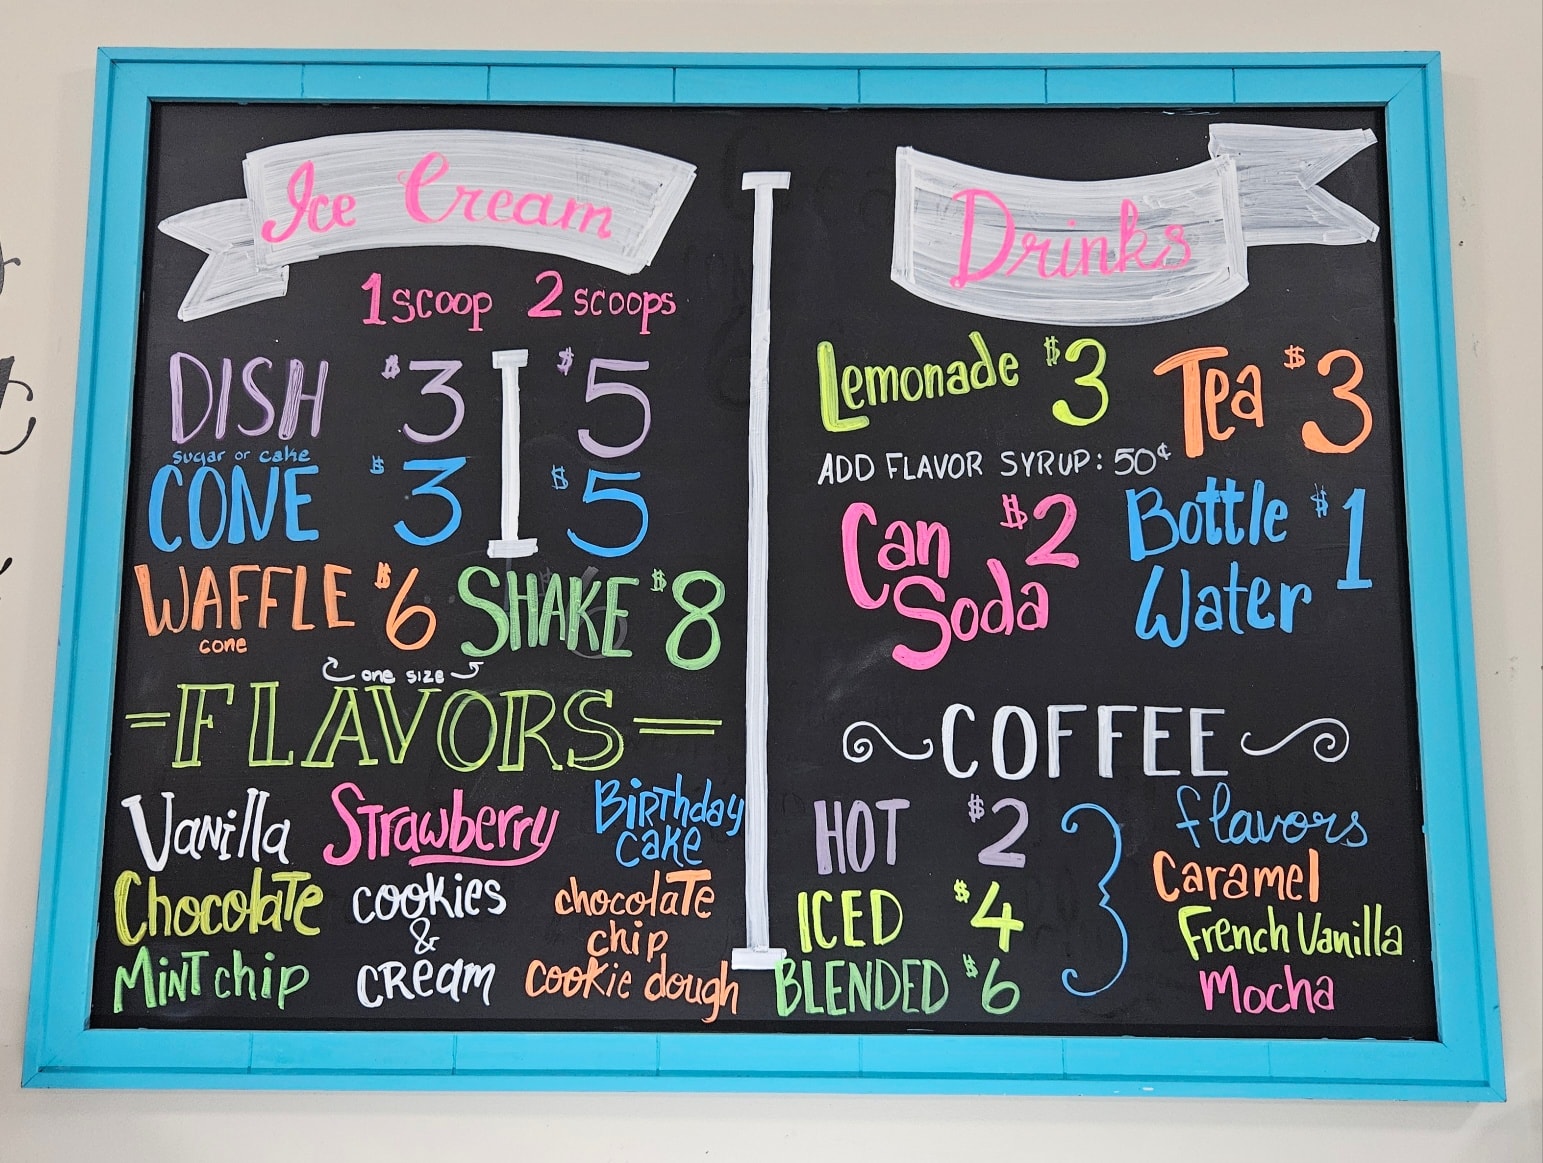 Ice Cream
1 scoop 2 scoops
DISH $3 $5
sugar or cake
CONE $3 $5
WAFFLE $6 SHAKE $8
cone
one size
FLAVORS
Vanilla Strawberry Birthday cake
Chocolate cookies & cream chocolate chip cookie dough
Mint chip
Drinks
Lemonade $3 Tea $3
ADD FLAVOR SYRUP: 50¢
Can Soda $2 Bottle Water $1
COFFEE
HOT $2
ICED $4
BLENDED $6
flavors
Caramel
French Vanilla
Mocha